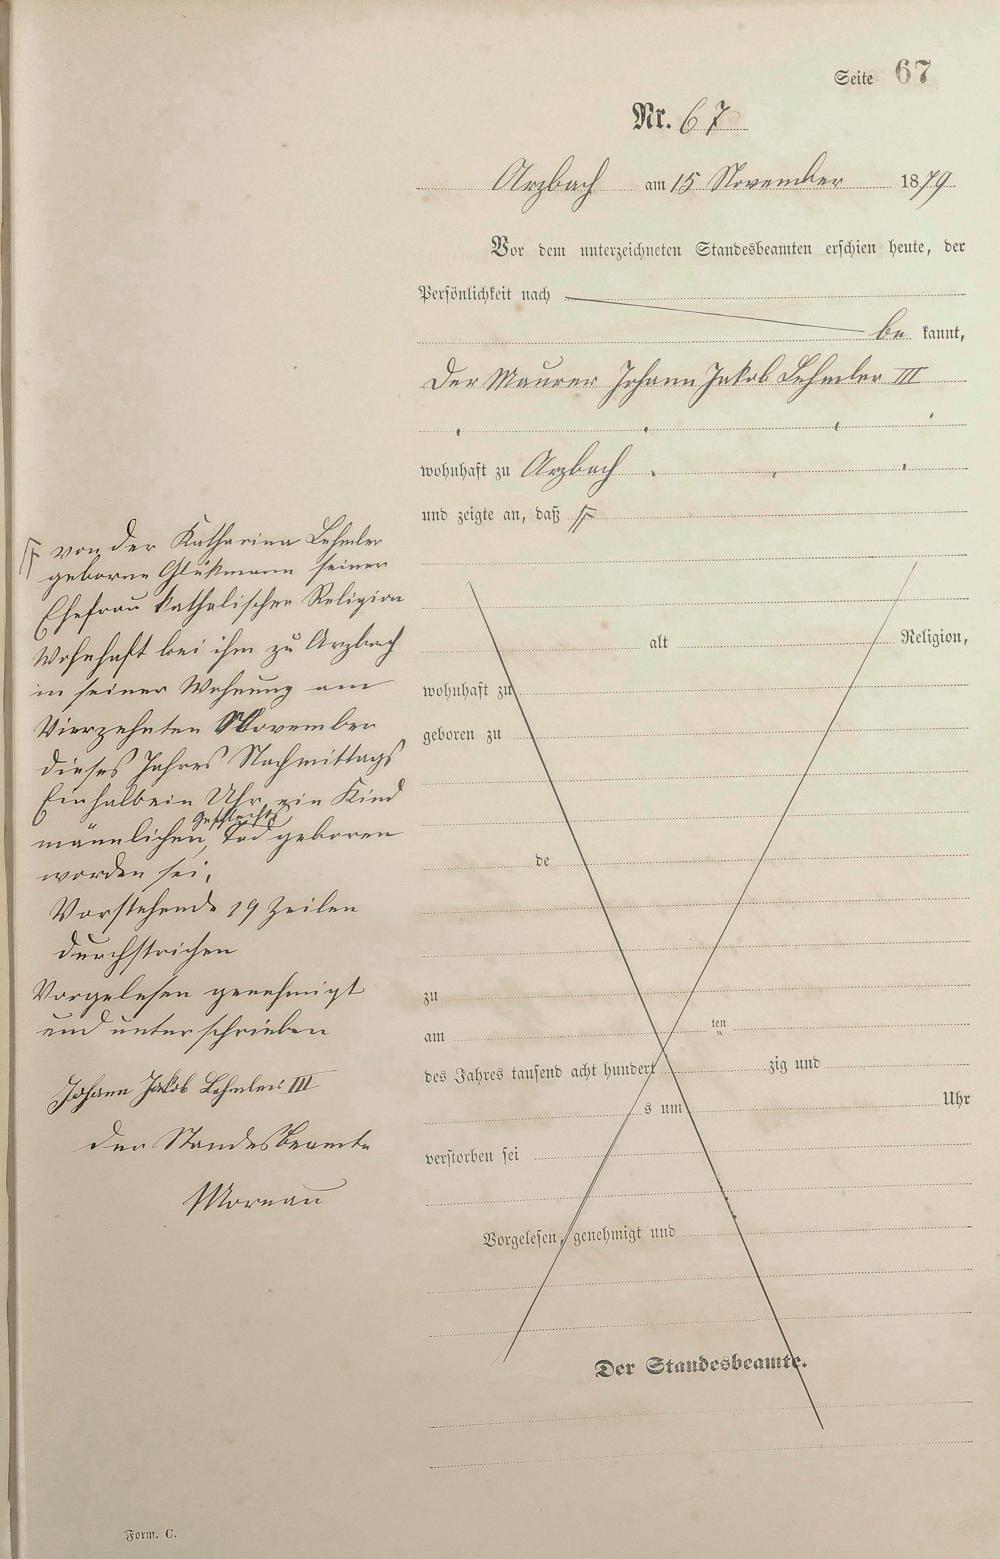 Seite 67
Nr. 67
Arzbach am 15 November 1879
Vor dem unterzeichneten Standesbeamten erschien heute, der
Persönlichkeit nach
be kannt,
Der Maurer Johann Jakob Lehmler III
wohnhaft zu Arzbach
und zeigte an, daß
von der Katharina Lehmler
geborne Glükmann seiner
Ehefrau katholischer Religion
Wohnhaft bei ihm zu Arzbach
in seiner Wohnung am
Vierzehnten November
dieses Jahres Nachmittags
Einhalbein Uhr, ein Kind
Geschlechts
männlichen, Tod geboren
worden sei.
Vorstehende 19 Zeilen
durchstrichen
Vorgelesen genehmigt
und unterschrieben
Johann Jakob Lehmler III
Der Standesbeamte
Mornau
alt Religion,
wohnhaft zu
geboren zu
de
zu
am ten
des Jahres tausend acht hundert zig und
s um Uhr
verstorben sei
Vorgelesen, genehmigt und
Der Standesbeamte.
Form. C.